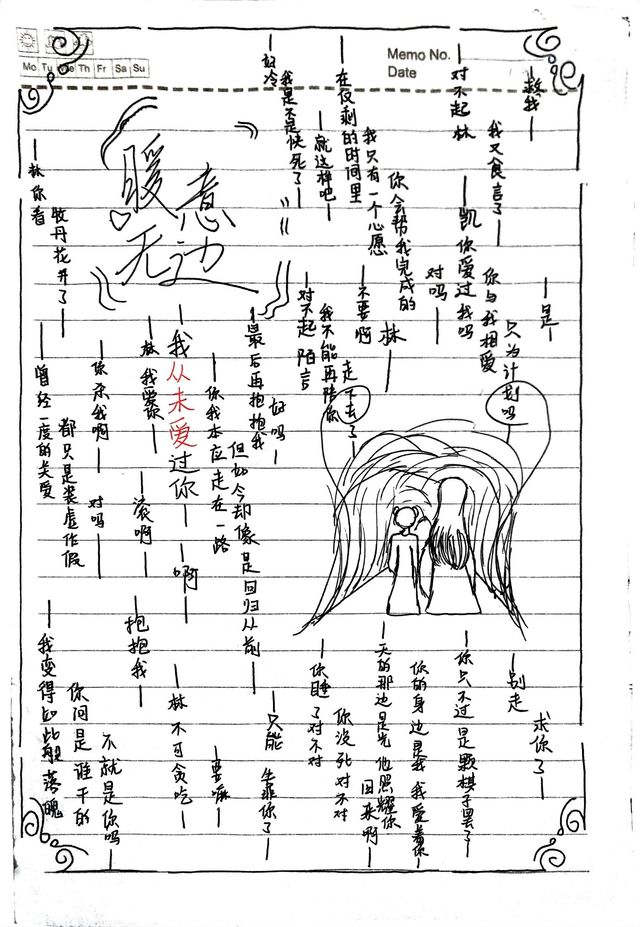 Memo No.
Date
Mo Tu We Th Fr Sa Su
暖意
无边
救我—
我又食言了—
对不起林
—凯你爱过我吗
—是—
你与我相爱
只为计划吗
你会帮我完成的
对吗—
林—
我只有一个心愿
—在仅剩的时间里
—就这样吧—
—不要啊
我是不是快死了—
—好冷
—对不起 陌言
我不能再陪你
走下去了—
—最后再抱抱我
好吗—
—你我本应走在一路
但如今却像是回归从前—
—我从未爱过你—
—啊—
—林我爱你—
—滚啊—
—你杀我啊—
对吗—
—林你看
牧丹花开了—
—曾经一度的关爱
都只是装虚作假
—别走
求你了—
—你只不过是颗棋子罢了—
你的身边是我 我爱着你—
—天的那边是光 他照耀你
回来啊—
—你睡了对不对
你没死对不对
—只能牺你了—
—要嘛—
—林不可贪吃—
抱抱我—
—我变得如此般落魄
你问是谁干的
不就是你吗—